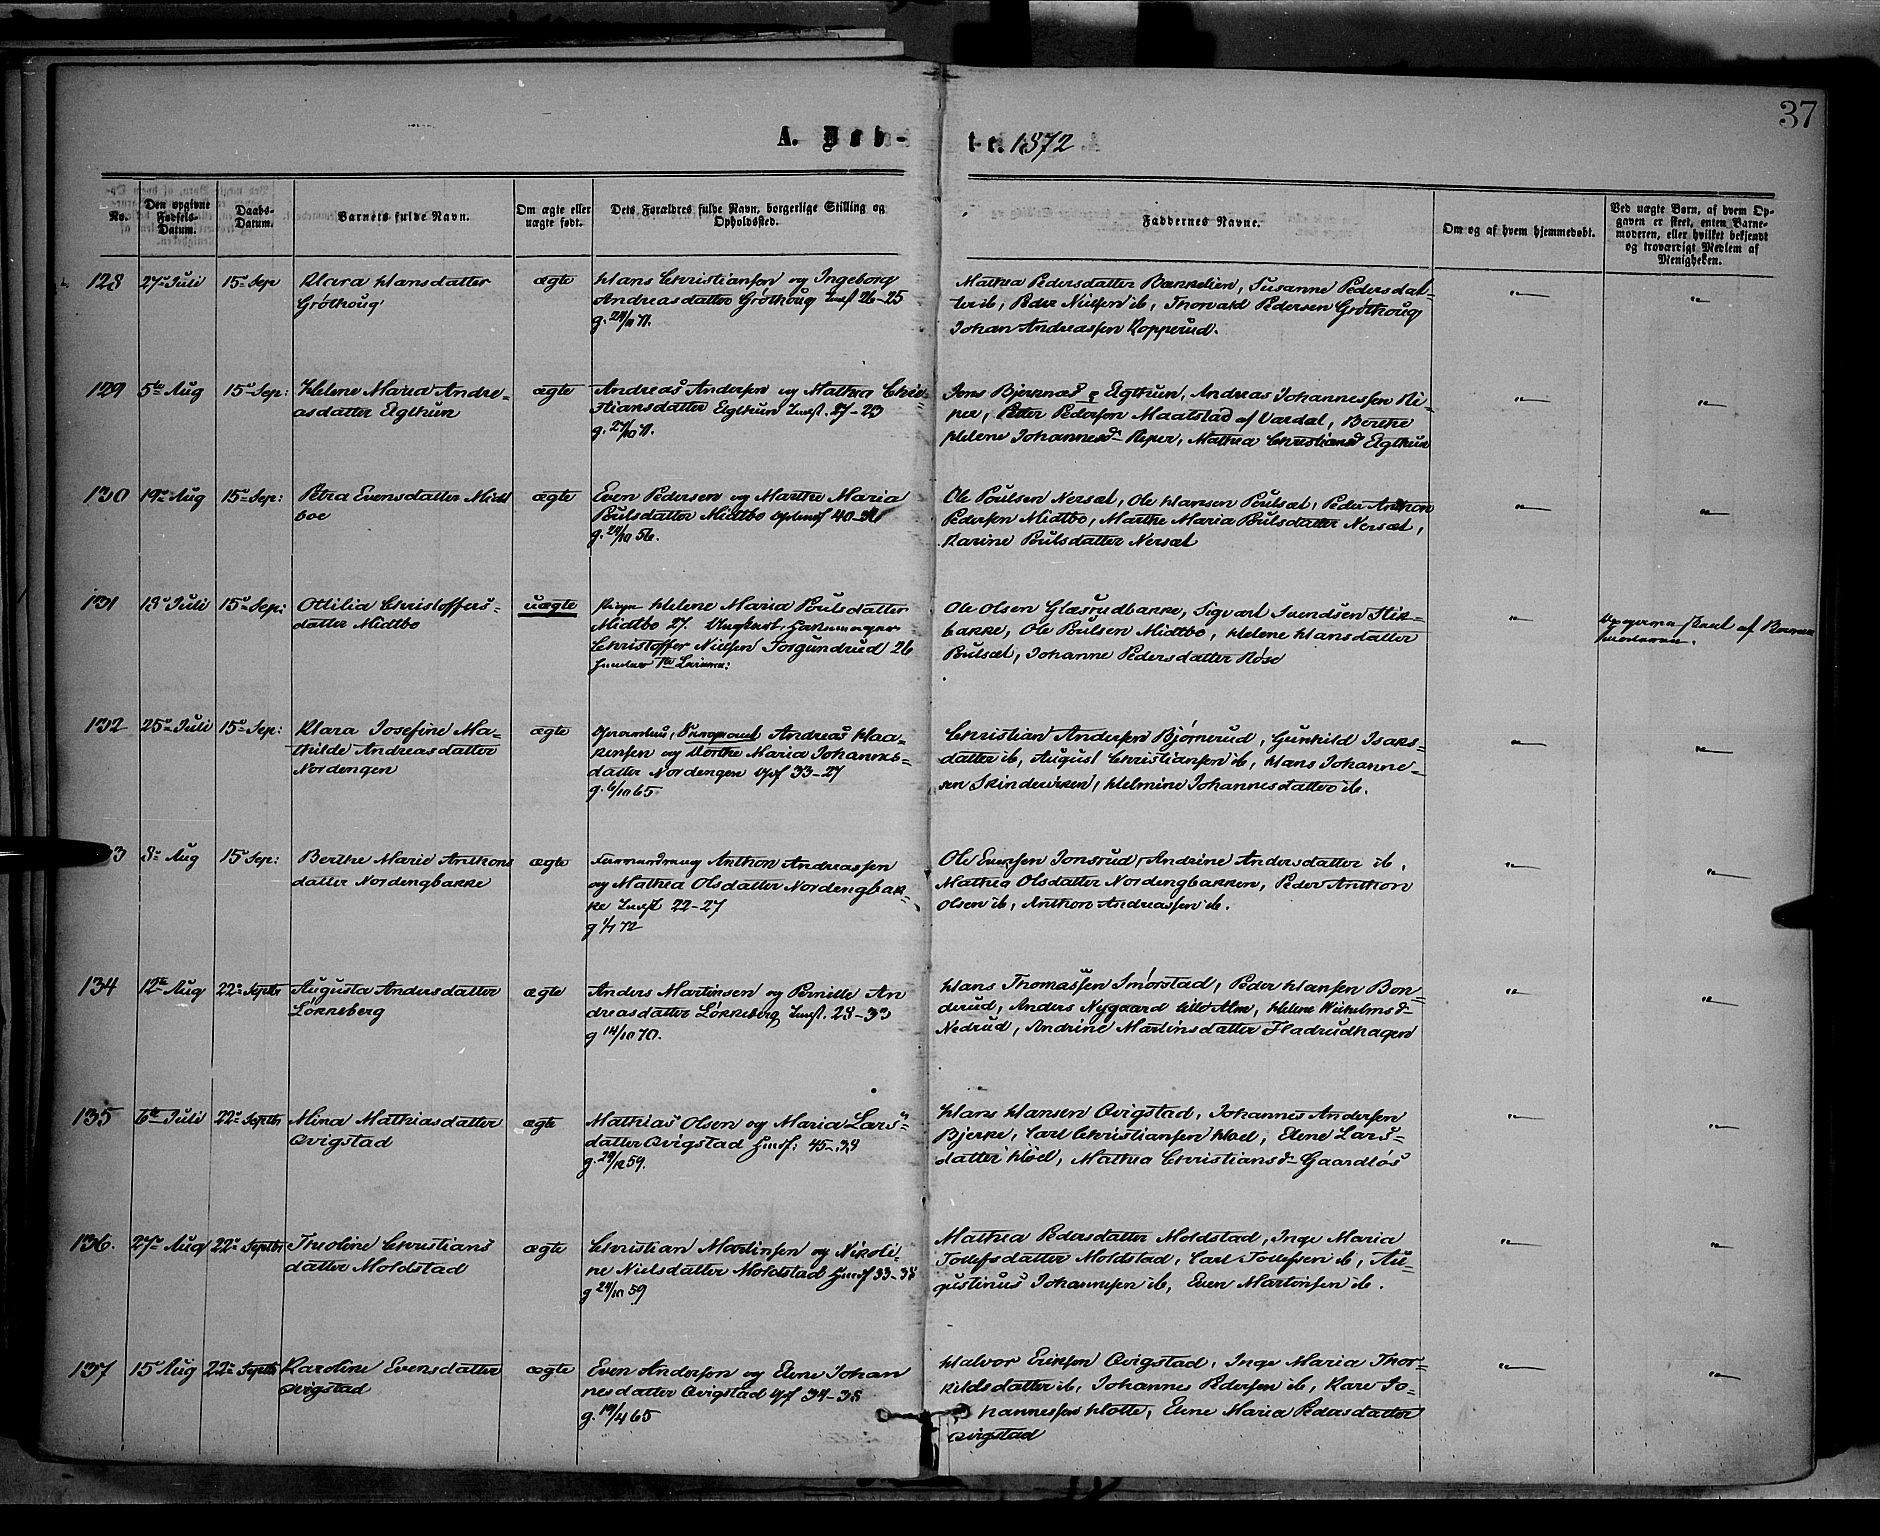 37
A. Døb-
te. 1872
No.
Den opgivne Fødsels-Datum.
Daabs-Datum.
Barnets fulde Navn.
Om ægte eller uægte født.
Dets Forældres fulde Navn, borgerlige Stilling og Opholdssted.
Faddernes Navne.
Om og af hvem hjemmedøbt.
Ved uægte Børn, af hvem Opgaven er skeet, enten Barnemoderen, eller hvilket bekjendt og troværdigt Medlem af Menigheden.
128 27de Juli 15de Sep Klara Hansdatter
Grøthoug
ægte
Hans Christiansen og Ingeborg
Andreasdatter Grøthoug Indst 26-25
g. 24/11 71.
Mathea Pedersdatter Bækkelien, Susanne Pedersdat-
ter ib, Peder Nielsen ib, Thorvald Pedersen Grøthoug
Johan Andreassen Kopperud.
129 5te Aug 15de Sep: Helene Maria Andre-
asdatter Elgthun
ægte
Andreas Andersen og Mathea Chri-
stiansdatter Elgthun Indst. 27-23
g. 27/10 71.
Jens Bjerknæs e Elgthun, Andreas Johannessen Ri-
per, Peder Pedersen Maatstad af Vardal, Berthe
Helene Johannesd. Reper, Mathea Christiansd Elgthun
130 19de Aug 15de Sep: Petra Evensdatter Midt
boe
ægte
Even Pedersen og Marthe Maria
Poulsdatter Midtbo 40-38
g. 24/10 56.
Ole Poulsen Nersæt, Ole Hansen Poulsæt, Peder Anthon
Pedersen Midtbo, Marthe Maria Poulsdatter Nersæt,
Karine Poulsdatter Nersæt
131 13de Juli 15de Sep: Ottilia Christoffers-
datter Midtbo
uægte
Pigen Helene Maria Poulsdatter
Midtbo 27. Ungkarl,
Christoffer Nielsen Torgundrud 26
Ole Olsen Glæsrudbakke, Sigvart Svendsen Stik-
bakke, Ole Poulsen Midtbo, Helene Hansdatter
Poulsæt, Johanne Pedersdatter Røse
Opgaven skeet af Barne
moderen.
132 25de Juli 15de Sep: Klara Josefine Ma-
thilde Andreasdatter
Nordengen
ægte
Andreas Haa-
kensen og Dorthe Maria Johannes-
datter Nordengen 33-27
g. 6/10 65
Christian Andersen Bjørnerud, Gunhild Isaks-
datter ib, August Christiansen ib, Hans Johanne-
sen Skinderviken, Helmine Johannesdatter ib.
3 8de Aug 15de Sep: Berthe Marie Anthons
datter Nordengbakke
ægte
Anthon Andreassen
og Mathea Olsdatter Nordengbak-
ke Indst 22-27
g 1/1 72
Ole Evensen Jonsrud, Andrine Andersdatter ib,
Mathea Olsdatter Nordengbakken, Peder Anthon
Olsen ib, Anthon Andreassen ib.
134 12te Aug 22de Septbr Augusta Andersdatter
Løkkeberg
ægte
Anders Martinsen og Pernille An
dreasdatter Løkkeberg Indst. 28-33
g 14/10 70.
Hans Thomassen Smørstad, Peder Hansen Bon-
derud, Anders Nygaard Alm, Helene Wilhelmsd
Nedrud, Andrine Martinsdatter Fladrudhagen
135 6te Juli 22de Septbr Mina Mathiasdatter
Qvigstad
ægte
Mathias Olsen og Maria Lars-
datter Qvigstad Husf: 45-38
g. 29/12 59.
Hans Hansen Qvigstad, Johannes Andersen
Bjerke, Carl Christiansen Hoel, Elene Lars-
datter Hoel, Mathea Christiansd Gaardløs
136. 27de Aug 22de Septbr Theoline Christians
datter Moldstad
ægte
Christian Martinsen og Nikoli-
ne Nielsdatter Moldstad Husf 33-38
g 24/10 59
Mathea Pedersdatter Moldstad, Inge Maria
Tollefsdatter Moldstad, Carl Tollefsen ib, Au-
gustinus Johannesen ib, Even Martinsen ib.
137 15de Aug 22de Septbr Karoline Evensdatter
Qvigstad
ægte
Even Andersen og Elene Johan
nesdatter Qvigstad 34-35
g. 19/4 65
Halvor Eriksen Qvigstad, Inge Maria Thor-
kildsdatter ib, Johannes Pedersen ib, Kare Jo-
hannessen Hotte, Elene Maria Pedersdatter
Qvigstad